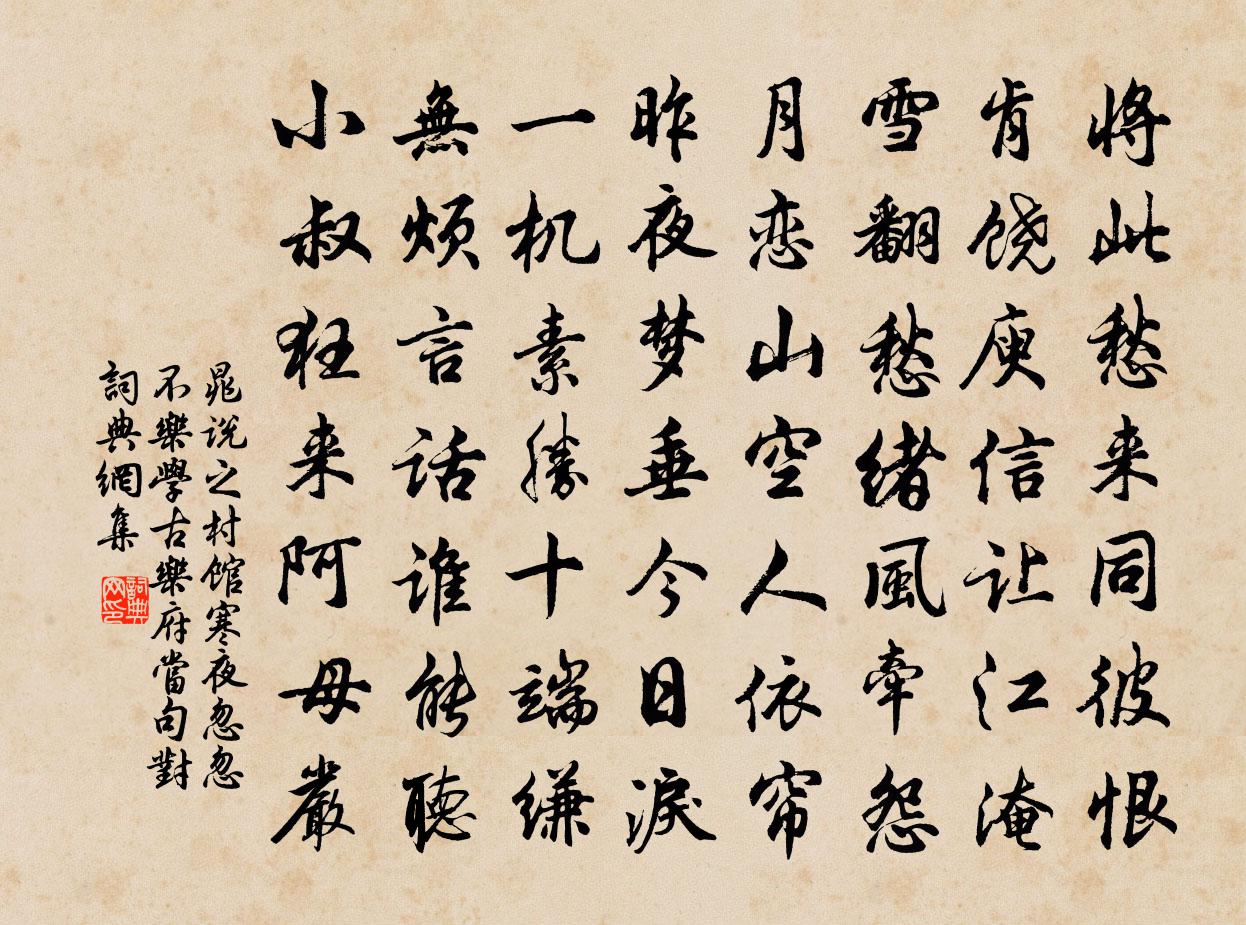 将此愁来同彼恨
肯饶庾信让江淹
雪翻愁绪風牽怨
月恋山空人依帘
昨夜梦垂今日淚
一机素勝十端缣
無烦言话谁能聽
小叔狂来阿母嚴
晁说之村馆寒夜忽忽
不樂學古樂府當句對
詞典網集
詞典
网印